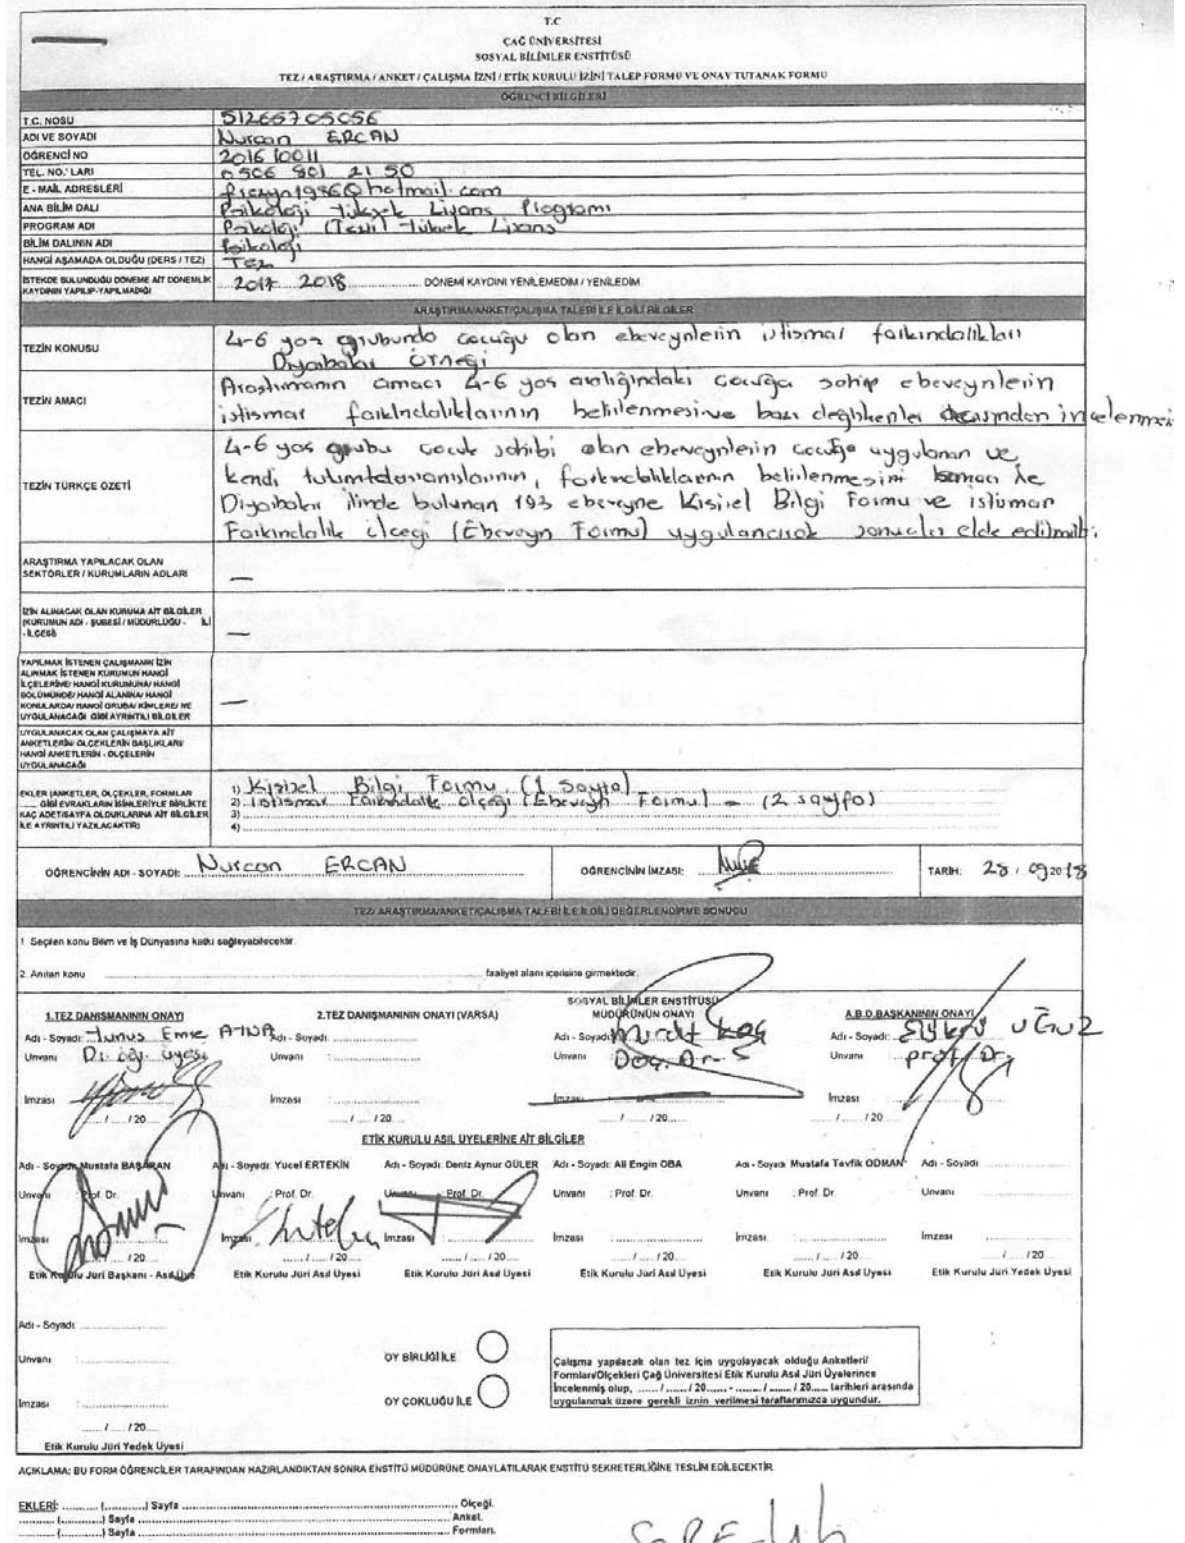 T.C
ÇAĞ ÜNİVERSİTESİ
SOSYAL BİLİMLER ENSTİTÜSÜ
TEZ / ARAŞTIRMA / ANKET / ÇALIŞMA İZNİ / ETİK KURULU İZİNİ TALEP FORMU VE ONAY TUTANAK FORMU
ÖĞRENCİ BİLGİLERİ
T.C. NOSU 51265705056
ADI VE SOYADI Nurcan ERCAN
ÖĞRENCİ NO 201610011
TEL. NO.' LARI 0506 801 21 50
E - MAİL ADRESLERİ @hotmail.com
ANA BİLİM DALI Psikoloji Yüksek Lisans Programı
PROGRAM ADI Psikoloji (Tezli Yüksek Lisans
BİLİM DALININ ADI Psikoloji
HANGİ AŞAMADA OLDUĞU (DERS / TEZ) Tez
İSTEKDE BULUNDUĞU DÖNEME AİT DÖNEMLİK KAYDININ YAPILIP-YAPILMADIĞI 2017 2018 DÖNEMİ KAYDINI YENİLEMEDİM / YENİLEDİM
ARAŞTIRMA/ANKET/ÇALIŞMA TALEBİ İLE İLGİLİ BİLGİLER
TEZİN KONUSU 4-6 yaş grubunda çocuğu olan ebeveynlerin istismar farkındalıkları
Diyarbakır Örneği
TEZİN AMACI Araştırmanın amacı 4-6 yaş aralığındaki çocuğa sahip ebeveynlerin
istismar farkındalıklarının belirlenmesi ve bazı değişkenler açısından incelenmesi
TEZİN TÜRKÇE ÖZETİ 4-6 yaş grubu çocuk sahibi olan ebeveynlerin çocuğa uygulanan ve
kendi farkındalıklarının belirlenmesini
Diyarbakır ilinde bulunan 193 ebeveyne Kişisel Bilgi Formu ve istismar
Farkındalık ölçeği (Ebeveyn Formu) uygulanarak sonuçlar elde edilmiştir.
ARAŞTIRMA YAPILACAK OLAN
SEKTÖRLER / KURUMLARIN ADLARI —
İZİN ALINACAK OLAN KURUMA AİT BİLGİLER
(KURUMUN ADI - ŞUBESİ / MÜDÜRLÜĞÜ - İLİ
- İLÇESİ) —
YAPILMAK İSTENEN ÇALIŞMANIN İZİN
ALINMAK İSTENEN KURUMUN HANGİ
İLÇELERİNE/ HANGİ KURUMUNA/ HANGİ
BÖLÜMÜNDE/ HANGİ ALANINA/ HANGİ
KONULARDA/ HANGİ GRUBA/ KİMLERE/ NE
UYGULANACAĞI GİBİ AYRINTILI BİLGİLER —
UYGULANACAK OLAN ÇALIŞMAYA AİT
ANKETLERİN/ ÖLÇEKLERİN BAŞLIKLARI/
HANGİ ANKETLERİN - ÖLÇELERİN
UYGULANACAĞI
EKLER (ANKETLER, ÖLÇEKLER, FORMLAR
...... GİBİ EVRAKLARIN İSİMLERİYLE BİRLİKTE
KAÇ ADET/SAYFA OLDUKLARINA AİT BİLGİLER
İLE AYRINTILI YAZILACAKTIR)
1) Kişisel Bilgi Formu (1 Sayfa)
2) İstismar Farkındalık ölçeği (Ebeveyn Formu) - (2 sayfa)
3)
4)
ÖĞRENCİNİN ADI - SOYADI: Nurcan ERCAN ÖĞRENCİNİN İMZASI: TARİH: 28 / 09 2018
TEZ/ ARAŞTIRMA/ANKET/ÇALIŞMA TALEBİ İLE İLGİLİ DEĞERLENDİRME SONUCU
1. Seçilen konu Bilim ve İş Dünyasına katkı sağlayabilecektir.
2. Anılan konu faaliyet alanı içerisine girmektedir.
1.TEZ DANIŞMANININ ONAYI 2.TEZ DANIŞMANININ ONAYI (VARSA) SOSYAL BİLİMLER ENSTİTÜSÜ MÜDÜRÜNÜN ONAYI A.B.D.BAŞKANININ ONAYI
Adı - Soyadı: Yunus Emre Adı - Soyadı: Adı - Soyadı: Murat Koç Adı - Soyadı:
Unvanı : Dr. öğr. üyesi Unvanı : Unvanı : Doç. Dr. Unvanı : prof. Dr.
İmzası İmzası : İmzası İmzası
..... / ..... / 20..... ..... / ..... / 20..... ..... / ..... / 20..... ..... / ..... / 20.....
ETİK KURULU ASIL ÜYELERİNE AİT BİLGİLER
Adı - Soyadı: Mustafa BAŞARAN Adı - Soyadı: Yücel ERTEKİN Adı - Soyadı: Deniz Aynur GÜLER Adı - Soyadı: Ali Engin OBA Adı - Soyadı: Mustafa Tevfik ODMAN Adı - Soyadı:
Unvanı : Prof. Dr. Unvanı : Prof. Dr. Unvanı : Prof. Dr. Unvanı : Prof. Dr. Unvanı : Prof. Dr. Unvanı :
İmzası İmzası İmzası : İmzası : İmzası : İmzası :
..... / 20..... ..... / ..... / 20..... ..... / ..... / 20..... ..... / ..... / 20..... ..... / ..... / 20..... ..... / ..... / 20.....
Etik Kurulu Jüri Başkanı - Asıl Üye Etik Kurulu Jüri Asıl Üyesi Etik Kurulu Jüri Asıl Üyesi Etik Kurulu Jüri Asıl Üyesi Etik Kurulu Jüri Asıl Üyesi Etik Kurulu Jüri Yedek Üyesi
Adı - Soyadı:
Unvanı :
İmzası :
..... / ..... / 20.....
Etik Kurulu Jüri Yedek Üyesi
OY BİRLİĞİ İLE
OY ÇOKLUĞU İLE
Çalışma yapılacak olan tez için uygulayacak olduğu Anketleri/
Formları/Ölçekleri Çağ Üniversitesi Etik Kurulu Asıl Jüri Üyelerince
İncelenmiş olup, ...... / ....... / 20...... - ........ / ....... / 20...... tarihleri arasında
uygulanmak üzere gerekli iznin verilmesi taraflarımızca uygundur.
AÇIKLAMA: BU FORM ÖĞRENCİLER TARAFINDAN HAZIRLANDIKTAN SONRA ENSTİTÜ MÜDÜRÜNE ONAYLATILARAK ENSTİTÜ SEKRETERLİĞİNE TESLİM EDİLECEKTİR
EKLERİ: .......... (...........) Sayfa .......... Ölçeği.
.......... (...........) Sayfa .......... Anket.
.......... (...........) Sayfa .......... Formları.